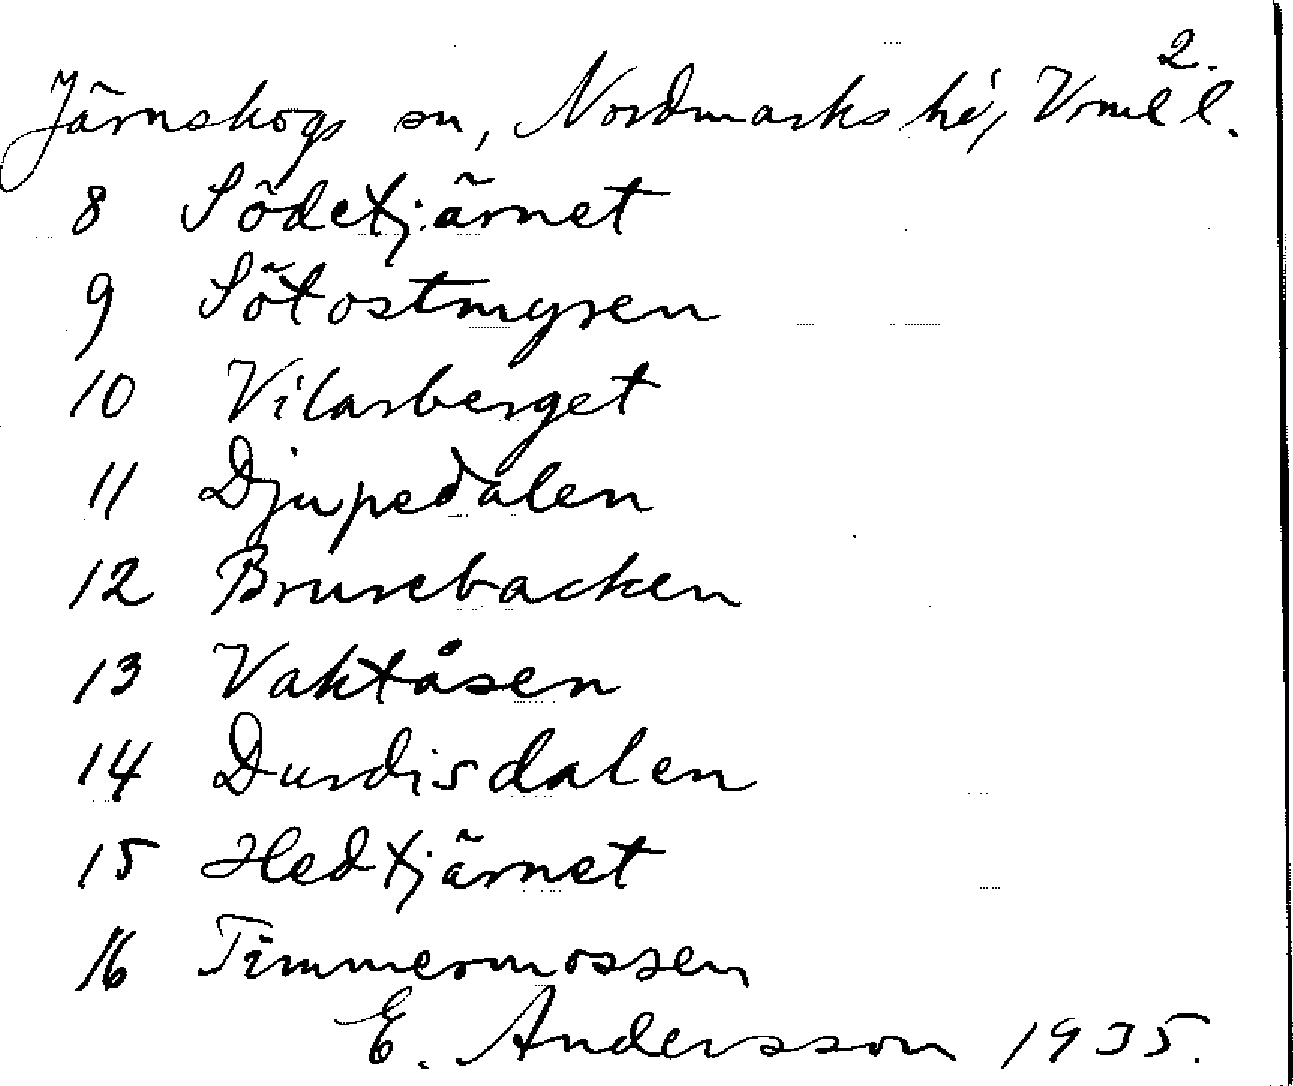 2.
Järnskogs sn, Nordmarks hd, Vrml l.
8 Södetjärnet
9 Sötostmyren
10 Vilarberget
11 Djupedalen
12 Brusebacken
13 Vaktåsen
14 Durdisdalen
15 Hedtjärnet
16 Timmermossen
E. Andersson 1935.